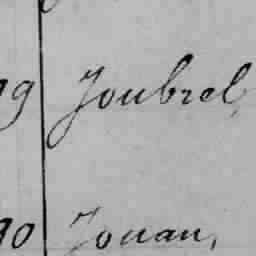 9 Joubrel,
90 Jouan,